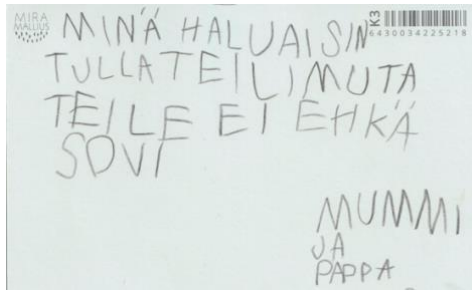 MIRA
MALLIUS
K3
6430034225218
MINÄ HALUAISIN
TULLA TEILI MUTA
TEILE EI EHKÄ
SOVI
MUMMI
JA
PAPPA